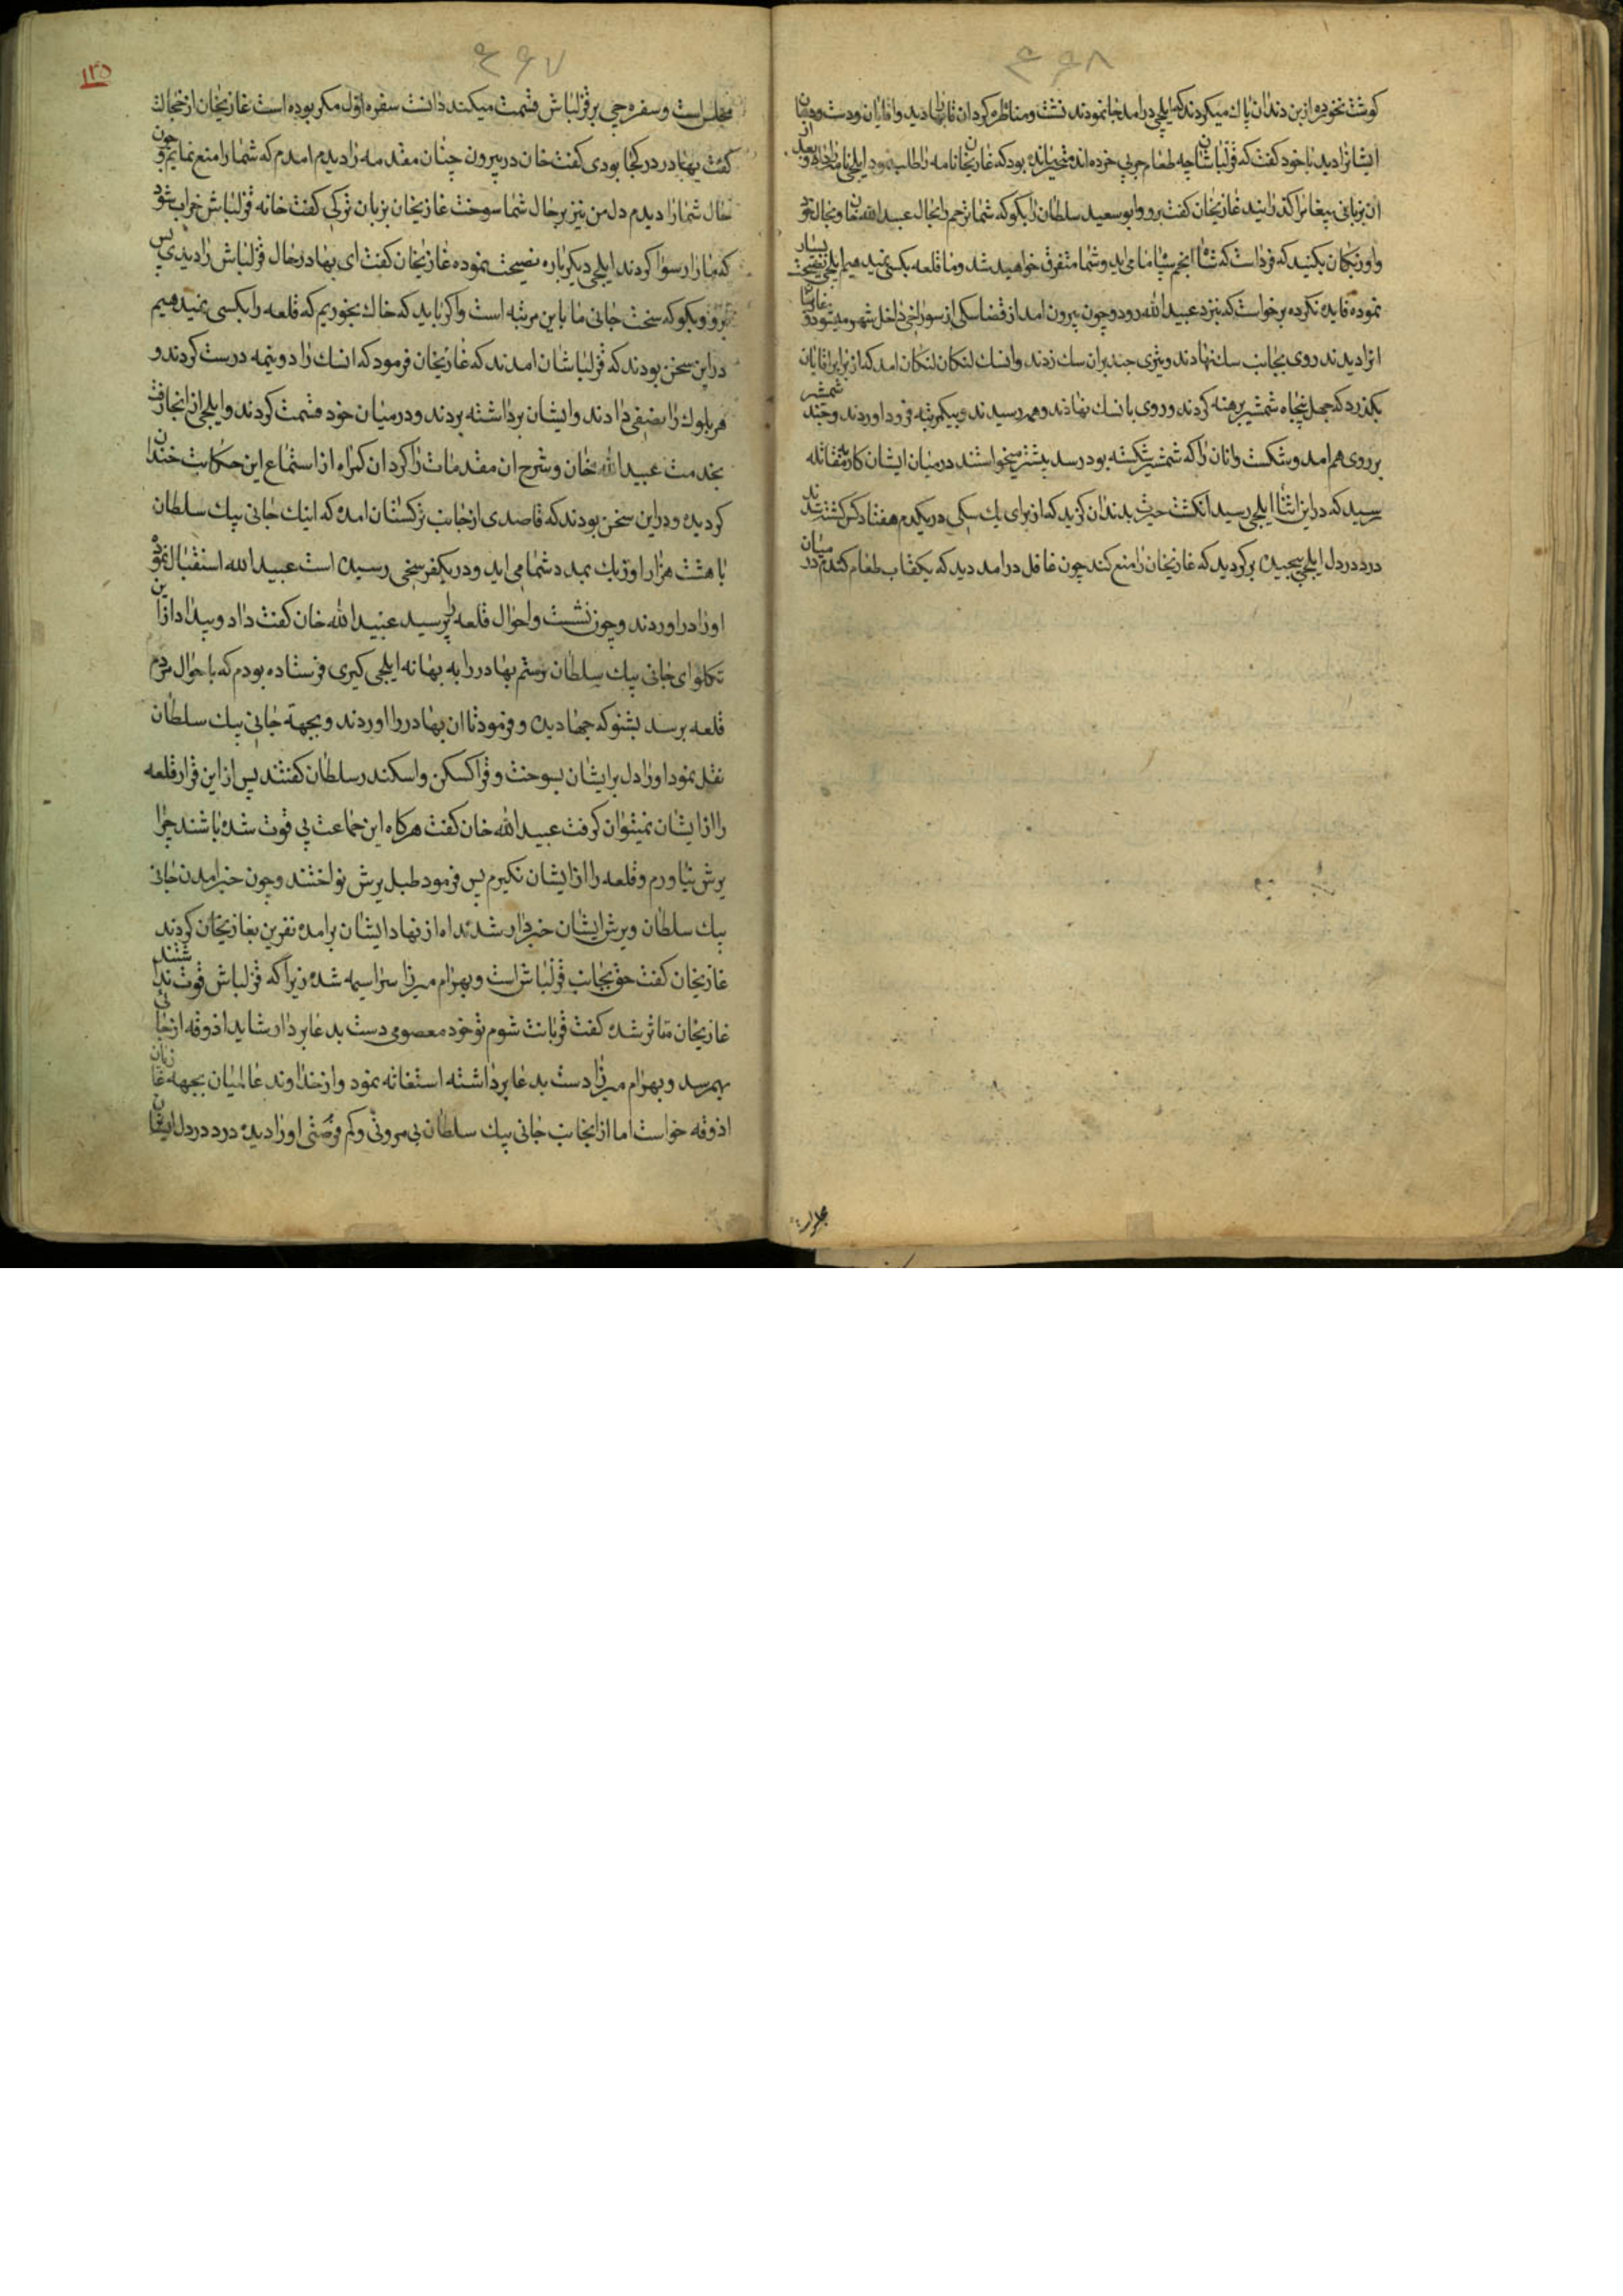 ۴۶۸
کوشت نخورده از بن دندان پاک میکردند که ایلچی درامد جا نمودند نشست و مناظره کرد ان قابها دید واقایان ودست ودهان
ایشانرا دید با خود کفت که قزلباشان چه طعام چربی خورده اند متحیر مانده بود که غازیخان نامه را طلب نمود ایلچی نامه را داد و بعد از
ان زبانی پیغام را کذرانید غازیخان کفت برو وابو سعید سلطان را بکو که شما ترحم را بحال عبید الله خان و بحال خود
واوزبکان بکنید که فرداست که شاه انجم سپاه ما می اید و شما متفرق خواهید شد و ما قلعه بکسی نمیدهیم ایلچی نصیحت بسیار
نموده فایده نکرده برخواست که بنزد عبید الله رود و چون بیرون امد از قضا سکی از سوراخی داخل شهر میشود و غازیان
انرا دیدند روی بجانب سک نهادند و تیری چند بران سک زدند وان سک لنکان لنکان امد که از برابر اقایان
بکذرد که چهل پنجاه شمشیر برهنه کردند و روی بان سک نهادند و بهم رسیدند و بیکمرتبه فرود اوردند و چند شمشیر
بر روی هم امد و شکست وانان را که شمشیر شکسته بود رسد بیشتر میخواستند در میان ایشان کار بمقاتله
رسید که در این اثنا ایلچی رسید انکشت حیرت بدندان کزید که از برای یک سکی در یکدم هفتاد کس کشته شدند
درد در دل ایلچی پیچیده بر کردید که غازیخان را منع کند چون غافل درامد دید که یکقاب طعام کندم در میان
۴۶۷
۱۲۵
مجلس است و سفره چی بر قزلباش قسمت میکند دانست سفره اول مکر بوده است غازیخان از خجالت
کفت بهادر در کجا بودی کفت خان در بیرون چنان مقدمه را دیدم امدم که شما را منع نمایم و چون
حال شما را دیدم دل من نیز بر حال شما سوخت غازیخان بزبان ترکی کفت خانه قزلباش خراب شود
که ما را رسوا کردند ایلچی دیکر باره نصیحت نموده غازیخان کفت ای بهادر حال قزلباش را دیدی پس
برو و بکو که سخت جانی ما باین مرتبه است واکر باید که خاک بخوریم که قلعه را بکسی نمیدهیم
در این سخن بودند که قزلباشان امدند که غازیخان فرمود که ان سک را دو نیمه درست کردند و
هر بلوک را نصفی دادند وایشان برداشته بردند و در میان خود قسمت کردند وایلچی از انجا رفت
بخدمت عبید الله خان و شرح ان مقدمات را کرد ان کمراه از استماع این حکایت خندان
کردیده و در این سخن بودند که قاصدی از جانب ترکستان امده که اینک جانی بیک سلطان
با هشت هزار اوزبک بمدد شما می اید و در یکفرسخی رسیده است عبید الله استقبال نموده
اورا دراوردند و چون نشست واحوال قلعه پرسید عبید الله خان کفت داد و بیداد از این
تکلو ای جانی بیک سلطان رستم بهادر را به بهانه ایلچی کیری فرستاده بودم که باحوال مردم
قلعه برسد بشنو که چها دیده و فرمود تا ان بهادر را اوردند و بجهة جانی بیک سلطان
نقل نمود اورا دل بر ایشان بسوخت و قراکسکن واسکندر سلطان کفتند پس از این قرار قلعه
را از ایشان نمیتوان کرفت عبید الله خان کفت هرکاه این جماعت بی قوت شده باشند چرا
یرش نیاورم و قلعه را از ایشان نکیرم پس فرمود طبل یرش نواختند و چون خبر امدن جانی
بیک سلطان و یرش ایشان خبردار شدند اه از نهاد ایشان برامده نفرین بغازیخان کردند
غازیخان کفت حق بجانب قزلباش است و بهرام میرزا سراسیمه شده زیرا که قزلباش قوت نداشتند
غازیخان متاثر شده کفت قربانت شوم تو خود معصومی دست بدعا بردار شاید اذوقه از جائی
بهم رسد و بهرام میرزا دست بدعا برداشته استغاثه نمود و از خداوند عالمیان بجهة غازیان
اذوقه خواست اما از انجانب جانی بیک سلطان بی مروتی و کم فرصتی اورا دیده درد در دل ایشان